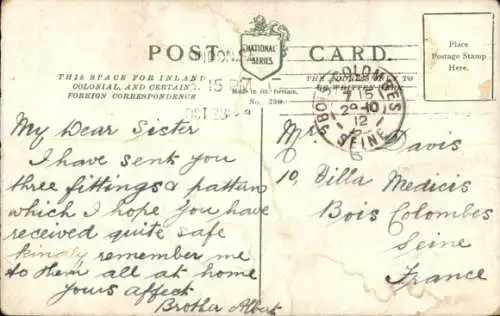 POST CARD.
NATIONAL SERIES.
THIS SPACE FOR INLAND
COLONIAL, AND CERTAIN
FOREIGN CORRESPONDENCE
THE ADDRESS ONLY TO
BE WRITTEN HERE
Made in Gt. Britain.
No.
Place
Postage Stamp
Here.
LONDON
.15 PM
OCT 28
BOIS-COLOMBES
15
29-10
12
SEINE
My Dear Sister
I have sent you
three fittings & pattun
which I hope you have
received quite safe
kindly remember me
to them all at home
yours affect
Brother Albert
Davis
10, Villa Medicis
Bois Colombes
Seine
France